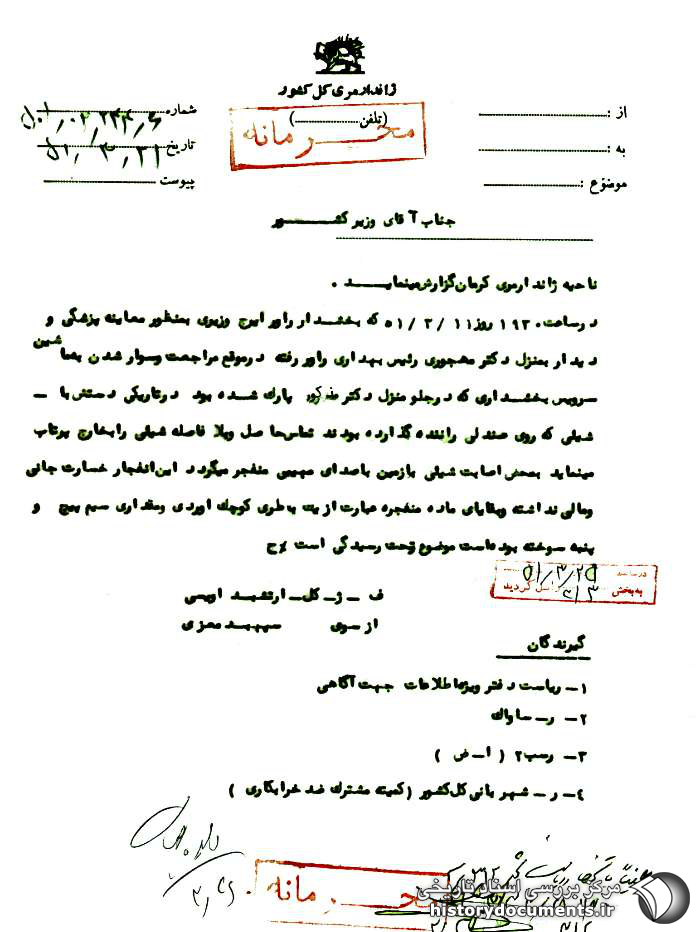 ژاندارمری کل کشور
(تلفن ....................)
محرمانه
شماره
تاریخ ۵۱/۳/۲۱
پیوست
از :
به :
موضوع :
جناب آقای وزیر کشور
ناحیه ژاندارمری کرمان گزارش مینماید .
در ساعت ۱۹۳۰ روز ۵۱/۳/۱۱ که بخشدار راور ایرج وزیری بمنظور معاینه پزشکی و
دیدار بمنزل دکتر مهجوری رئیس بهداری راور رفته در موقع مراجعت و سوار شدن بماشین
سرویس بخشداری که در جلو منزل دکتر مذکور پارک شده بود در تاریکی دستش با ـ
شیئی که روی صندلی راننده گذارده بودند تماس حاصل و بلا فاصله شیئی را بخارج پرتاب
مینماید بمحض اصابت شیئی با زمین با صدای مهیبی منفجر میگردد این انفجار خسارت جانی
و مالی نداشته و بقایای ماده منفجره عبارت از یک باطری کوچک اوردی و مقداری سیم پیچ و
پنبه سوخته بوده است موضوع تحت رسیدگی است
در ساعت
۵۱/۳/۲۹
به بخش ۳۱۳ واصل گردید
ف ـ ژ ـ کل ـ ارتشبد اویسی
از سوی سپهبد معزی
گیرندگان
۱ـ ریاست دفتر ویژه اطلاعات جهت آگاهی
۲ـ ر ـ ساواک
۳ـ رسب۲ ( ا ـ ض )
۴ـ ر ـ شهربانی کل کشور (کمیته مشترک ضد خرابکاری )
محرمانه
مرکز بررسی اسناد تاریخی
historydocuments.ir